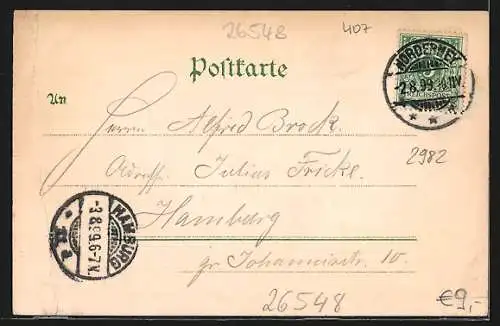 26548
407
Postkarte
NORDERNEY
-2.8.99
5
REICHSPOST
An
Herrn Alfred Brock.
Adress. Julius Fricke.
2982
Hamburg
gr. Johannisstr. 10.
HAMBURG
-3.8.99.6-7V.
26548
€9,-